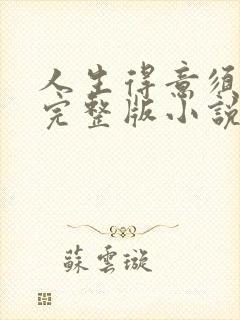 人生得意須
完整版小說
蘇雲璇